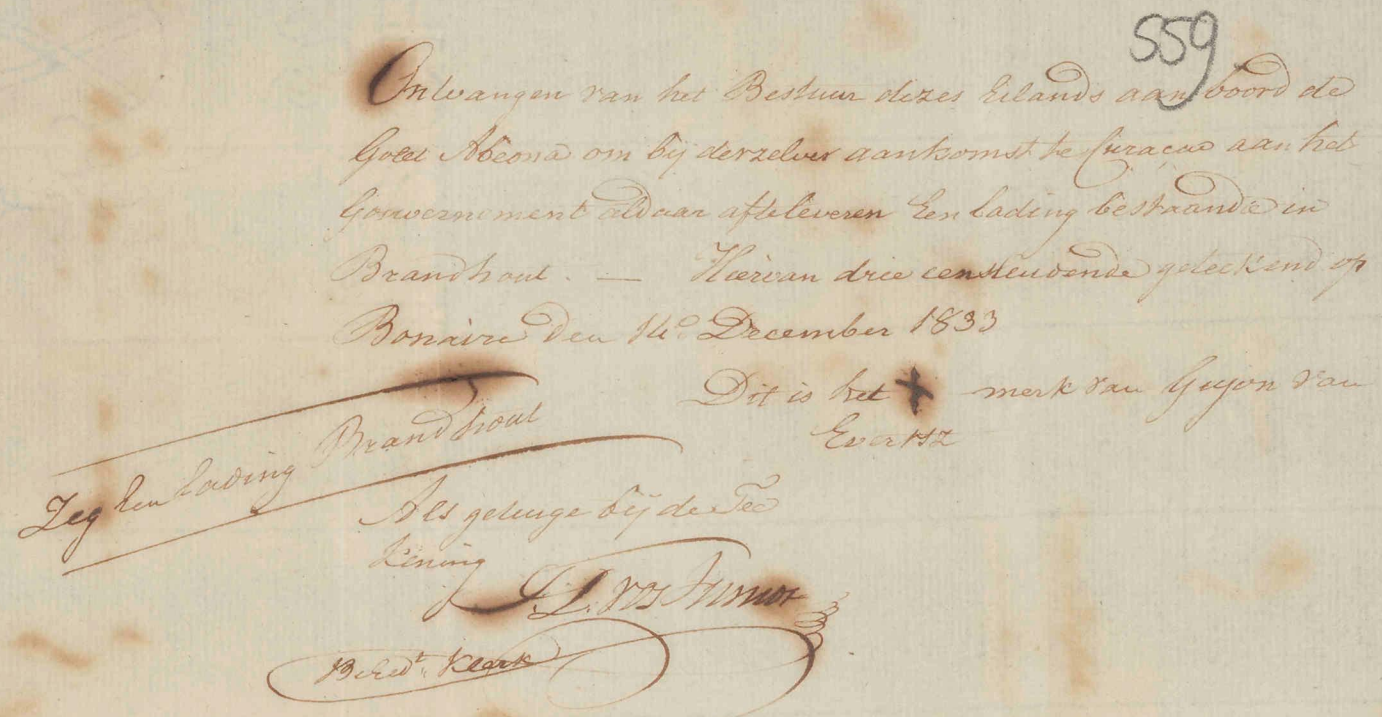 559
Ontvangen van het Bestuur dezes Eilands aan boord de
Golet Abeona om bij derzelver aankomst te Curaçao aan het
Gouvernement aldaar afteleveren Een lading bestaande in
Brandhout. — Hiervan drie eensluidende geteekend op
Bonaire den 14e December 1833
Dit is het + merk van Gujon van
Evertsz
Zeg Een lading Brandhout
Als getuige bij de Tee
kening
Vos Junior
Klerk